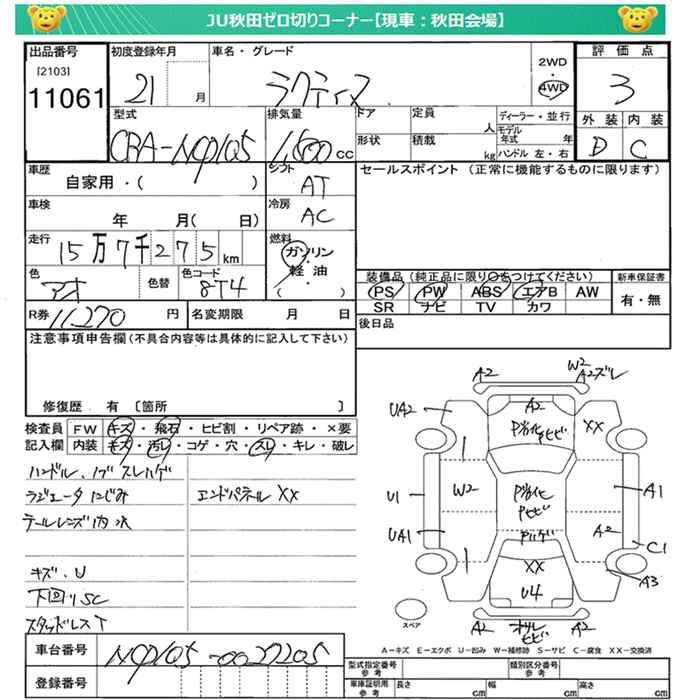 JU秋田ゼロ切りコーナー【現車：秋田会場】
出品番号 初度登録年月 車名・グレード 評価点
[2103]
11061
21 月
ラクティス
2WD
4WD
3
型式 排気量 ドア 定員 人 ディーラー・並行 外装 内装
CBA-NCP105 1,500 cc
形状 積載 kg モデル年式 年
ハンドル 左・右
D C
車歴 シフト セールスポイント（正常に機能するものに限ります）
自家用・（ ） AT
車検 冷房
年 月（ 日） AC
走行 燃料
15万7千275km ガソリン
軽油
（ ）
色 色替 色コード
アオ 8T4
装備品（純正品に限り○をつけてください） 新車保証書
PS PW ABS エアB AW 有・無
SR ナビ TV カワ
R券 11,270 円 名変期限 月 日 後日品
注意事項申告欄（不具合内容等は具体的に記入して下さい）
修復歴 有 〔箇所 〕
検査員 FW キズ・飛石・ヒビ割・リペア跡・×要
記入欄 内装 キズ・汚レ・コゲ・穴・スレ・キレ・破レ
ハンドル、ノブ スレハゲ
ラジエータにじみ エンドパネル XX
テールレンズ内水
キズ・U
下回りSC
スタッドレスT
A2 W2
A2ズレ
UA2 A2 XX
W2
U1 A1
UA1 A2 C1
XX
U4 A3
A2 A2
ヒビ
スペア
A－キズ E－エクボ U－凹み W－補修跡 S－サビ C－腐食 XX－交換済
車台番号 NCP105-0027205
登録番号
型式指定番号 参考 類別区分番号 参考
車庫証明用 参考 長さ cm 幅 cm 高さ cm